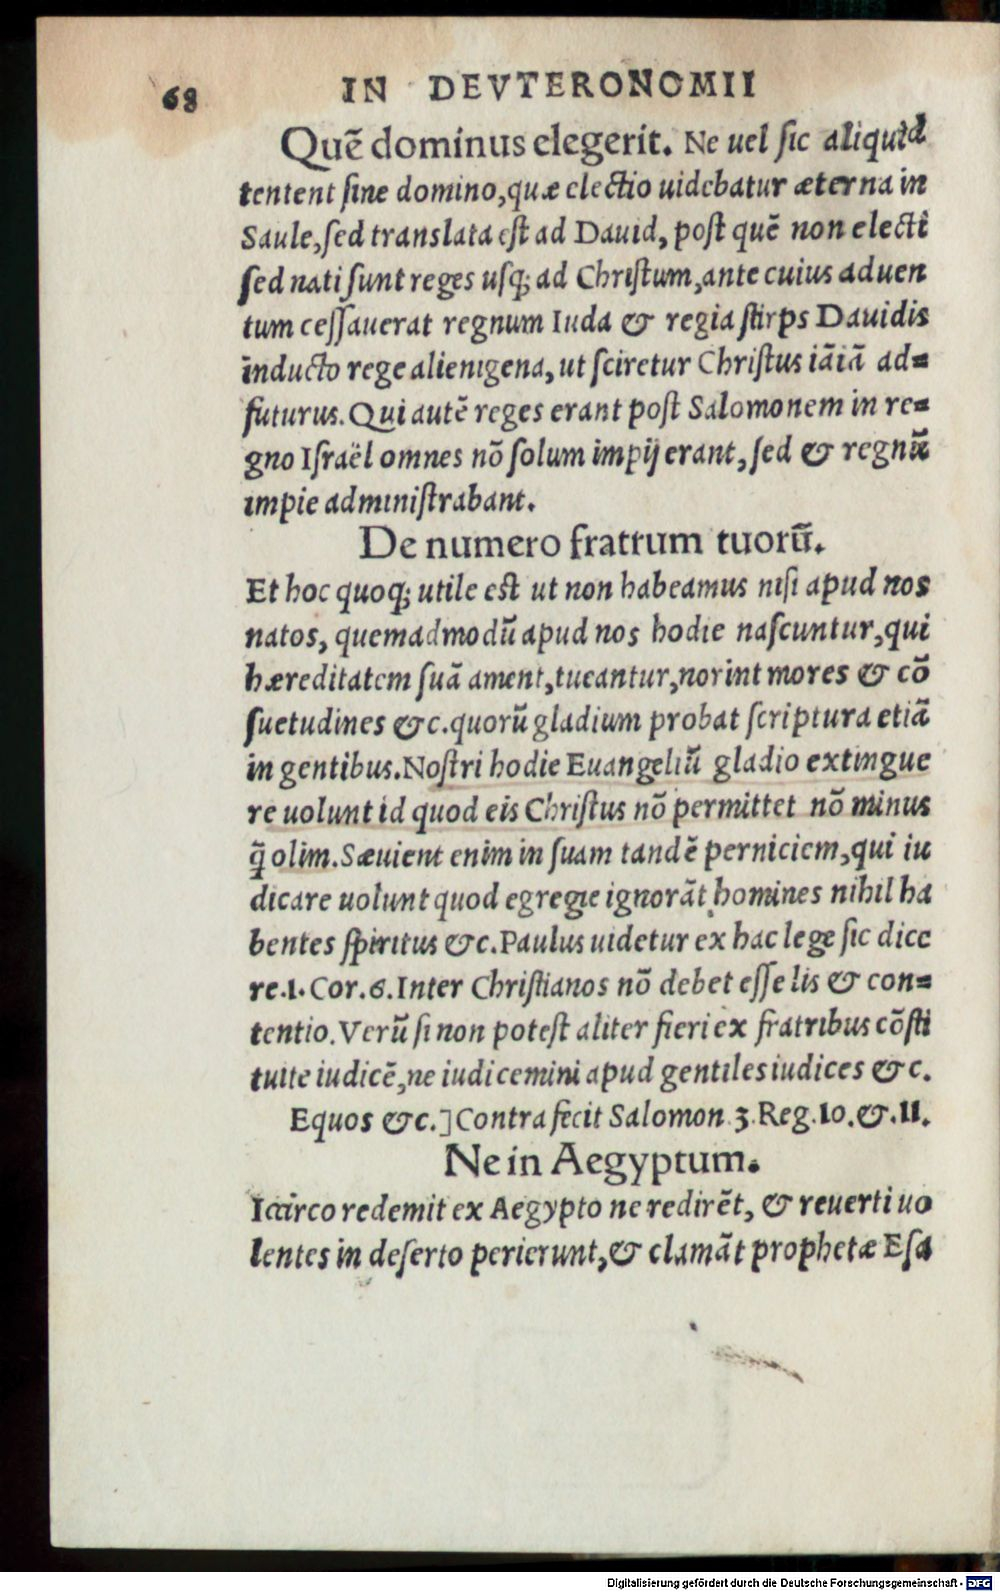 68 IN DEVTERONOMII
Quē dominus elegerit. Ne uel ſic aliquid
tentent ſine domino, quæ electio uidebatur æterna in
Saule, ſed translata eſt ad Dauid, poſt quē non electi
ſed nati ſunt reges uſq; ad Chriſtum, ante cuius aduen
tum ceſſauerat regnum Iuda & regia ſtirps Dauidis
inducto rege alienigena, ut ſciretur Chriſtus iāiā ad=
futurus. Qui autē reges erant poſt Salomonem in re=
gno Iſraël omnes nō ſolum impij erant, ſed & regnū
impie adminiſtrabant.
De numero fratrum tuorū.
Et hoc quoq; utile est ut non habeamus niſi apud nos
natos, quemadmodū apud nos hodie naſcuntur, qui
hæreditatem ſuā ament, tueantur, norint mores & cō
ſuetudines &c. quorū gladium probat ſcriptura etiā
in gentibus. Noſtri hodie Euangeliū gladio extingue
re uolunt id quod eis Chriſtus nō permittet nō minus
q̄ olim. Sæuient enim in ſuam tandē perniciem, qui iu
dicare uolunt quod egregie ignorāt homines nihil ha
bentes ſpiritus &c. Paulus uidetur ex hac lege ſic dice
re. 1. Cor. 6. Inter Chriſtianos nō debet eſſe lis & con=
tentio. Verū ſi non poteſt aliter fieri ex fratribus cōſti
tuite iudicē, ne iudicemini apud gentiles iudices &c.
Equos &c.] Contra fecit Salomon 3. Reg. 10. &. 11.
Ne in Aegyptum.
Iccirco redemit ex Aegypto ne redirēt, & reuerti uo
lentes in deſerto perierunt, & clamāt prophetæ Eſa
Digitalisierung gefördert durch die Deutsche Forschungsgemeinschaft - DFG